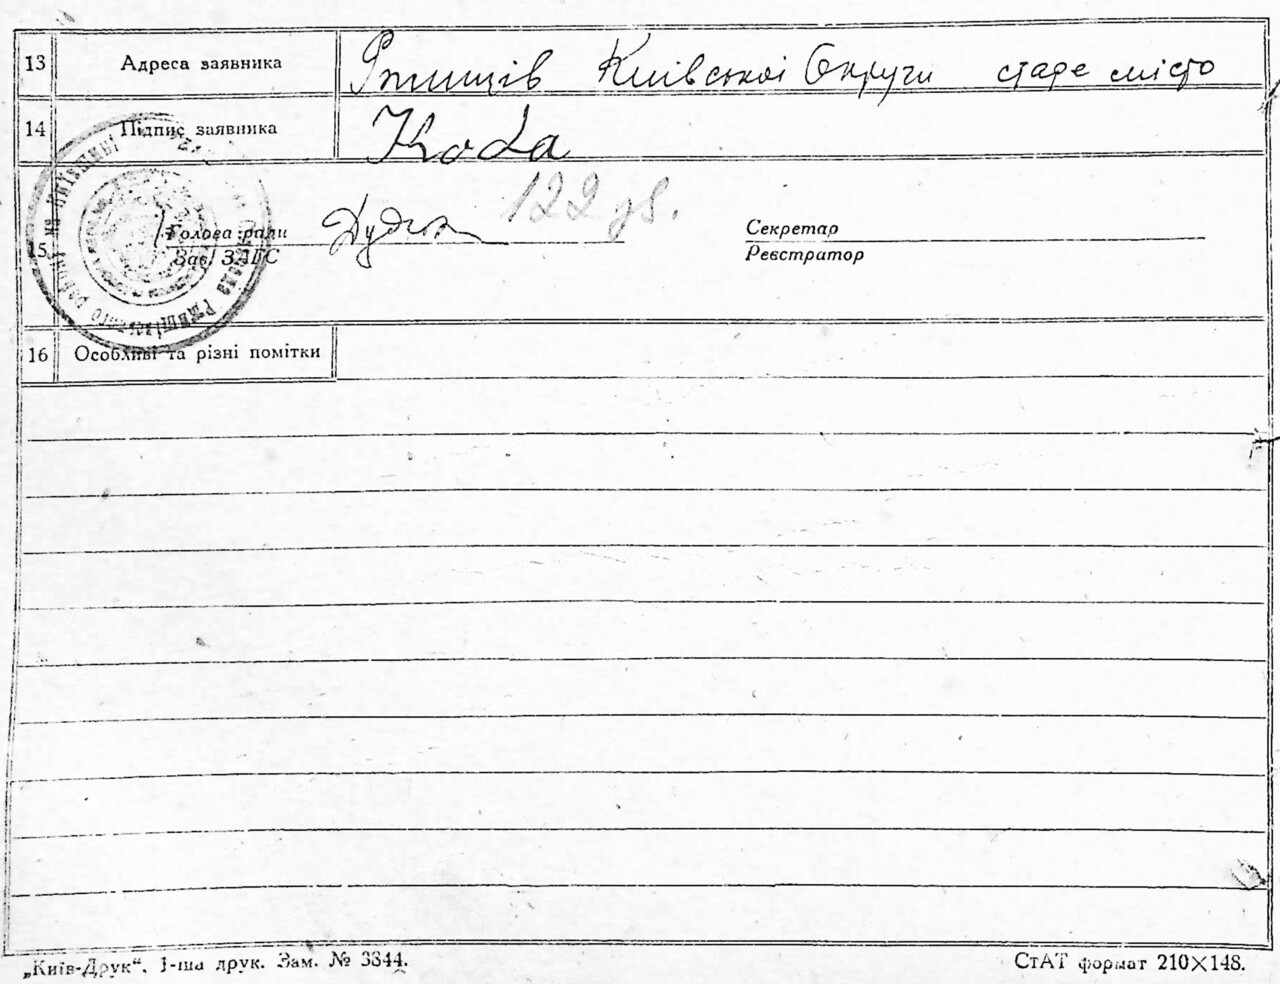 13 Адреса заявника Ржищів Київської Округи старе місто
14 Підпис заявника Кода
122
15 Голова ради Секретар
Зав. ЗАГС Реєстратор
на Київщині району рада Ржищівського
16 Особливі та різні помітки
„Київ-Друк“. 1-ша друк. Зам. № 3344.
СтАТ формат 210×148.